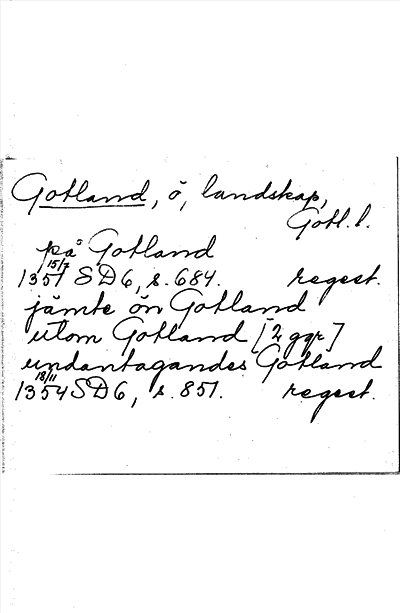 Gotland, ö, landskap,
Gotl. l.
på Gotland
1351 15/7 SD6, s. 684. regest.
jämte ön Gotland
utom Gotland [2 ggr]
undantagandes Gotland
1354 18/11 SD6, s. 851. regest.